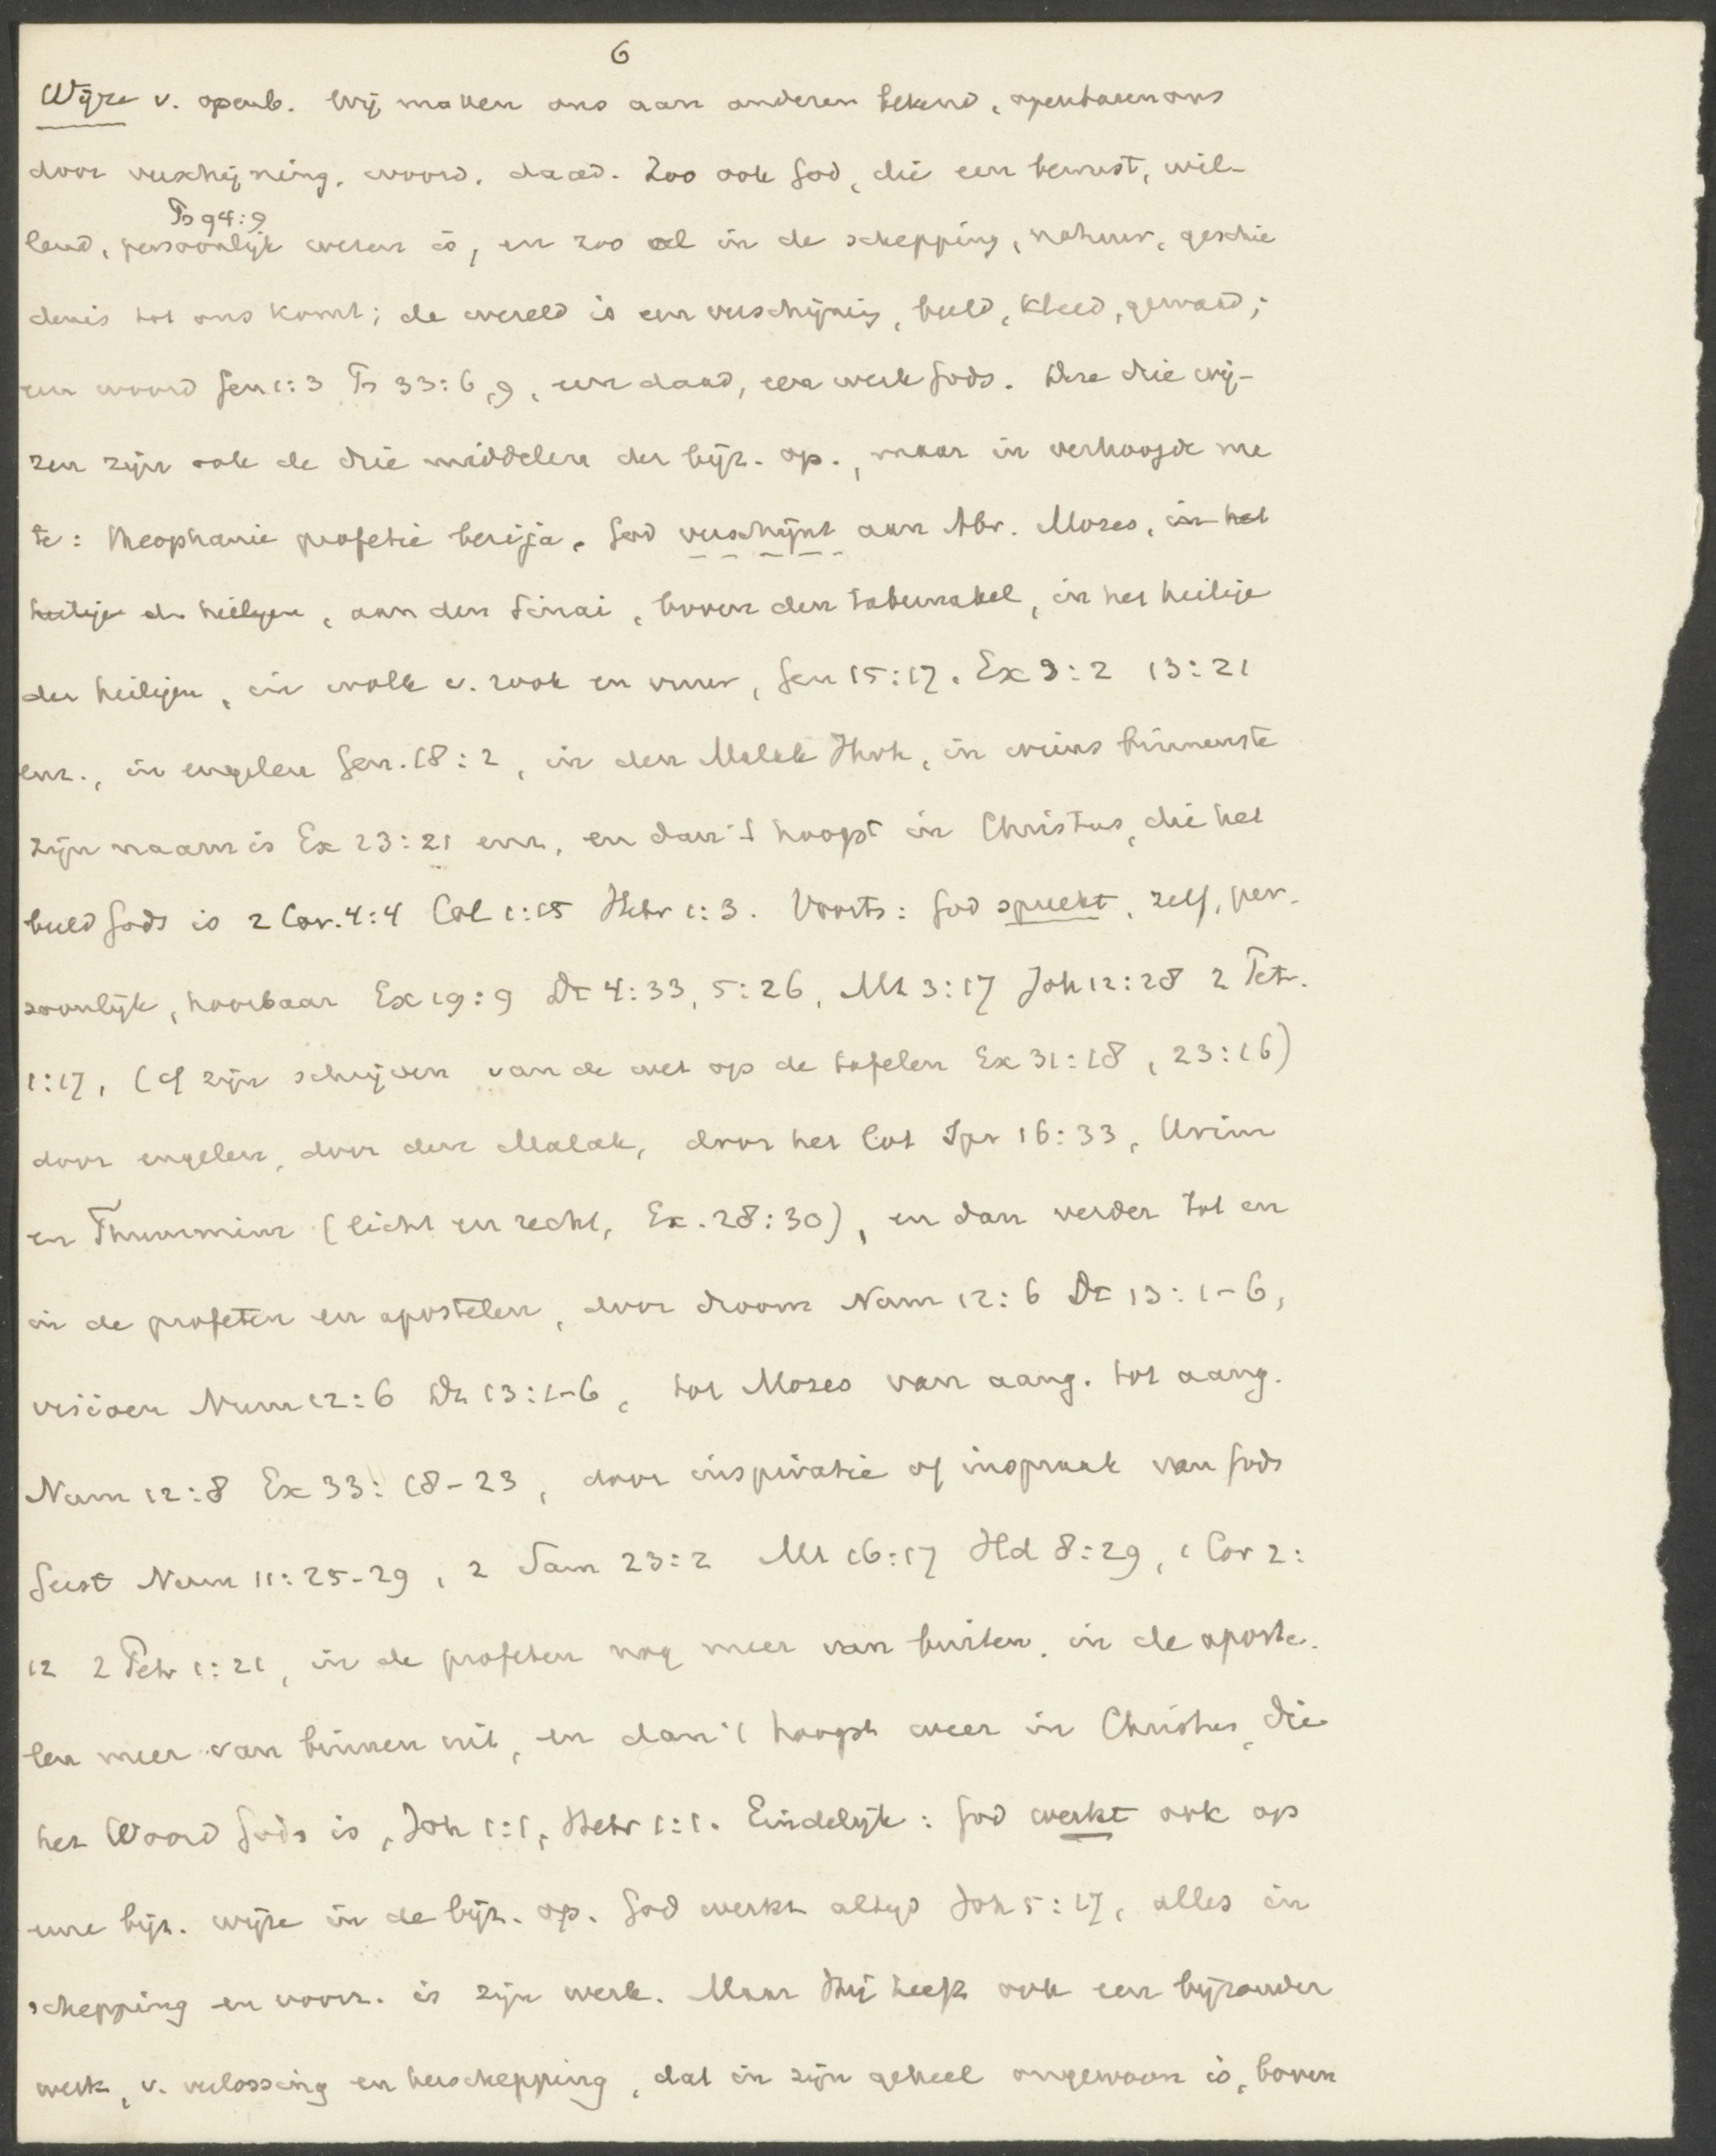 6
Wijze v. openb. Wij maken ons aan anderen bekend, openbaren ons
door verschijning, woord, daad. Zoo ook God, die een bewust, wil-
Ps 94:9
lend, persoonlijk wezen is, en zoo al in de schepping, natuur, geschie
denis tot ons komt; de wereld is een verschijning, beeld, kleed, gewaad;
een woord Gen 1:3 Ps 33:6,9, een daad, een werk Gods. Deze drie wij-
zen zijn ook de drie middelen der bijz. op., maar in verhoogde ma
te: theophanie profetie God verschijnt aan Abr. Mozes, in het
heilige der heiligen, aan den Sinai, boven den tabernakel, in het heilige
der heiligen, in wolk v. rook en vuur, Gen 15:17, Ex 3:2 13:21
enz., in engelen Gen. 18:2, in den Malak Jhvh, in wiens binnenste
zijn naam is Ex 23:21 enz, en dan 't hoogst in Christus, die het
beeld Gods is 2 Cor. 4:4 Col 1:15 Hebr 1:3. Voorts: God spreekt, zelf, per-
soonlijk, hoorbaar Ex 19:9 Dt 4:33, 5:26, Mt 3:17 Joh 12:28 2 Petr.
1:17, (cf zijn schrijven van de wet op de tafelen Ex 31:18, 23:16)
door engelen, door den Malak, door het lot Spr 16:33, Urim
en Thummim (licht en recht, Ex. 28:30), en dan verder tot en
in de profeten en apostelen, door droom Num 12:6 Dt 13:1-6,
visioen Num 12:6 Dt 13:1-6, tot Mozes van aang. tot aang.
Num 12:8 Ex 33:18-23, door inspiratie of inspraak van Gods
Geest Num 11:25-29, 2 Sam 23:2 Mt 16:17 Hd 8:29, 1 Cor 2:
12 2 Petr 1:21, in de profeten nog meer van buiten, in de aposte-
len meer van binnen uit, en dan 't hoogst weer in Christus, die
het Woord Gods is, Joh 1:1, Hebr 1:1. Eindelijk: God werkt ook op
eene bijz. wijze in de bijz. op. God werkt altijd Joh 5:17, alles in
schepping en voorz. is zijn werk. Maar Hij heeft ook een bijzonder
werk, v. verlossing en herschepping, dat in zijn geheel ongewoon is, boven